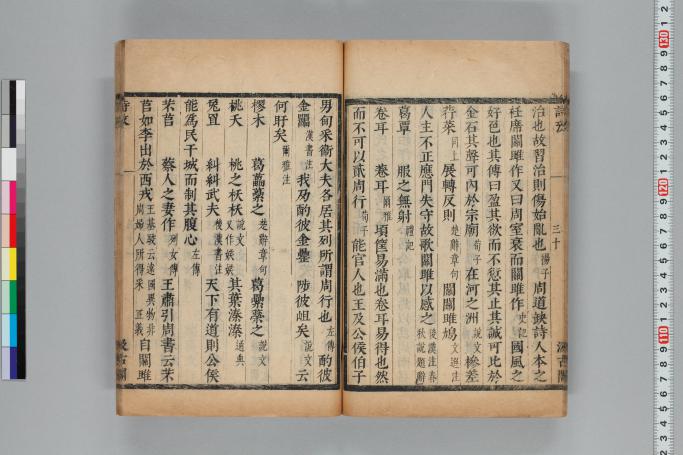 治也故習治則傷始亂也揚子周道缺詩人本之
衽席關雎作又曰周室衰而關雎作史記國風之
好色也其傳曰盈其欲而不愆其止其誠可比於
金石其聲可內於宗廟荀子在河之洲說文槮差
荇菜同上展轉反則楚辭章句關關雎鳩文選注
人主不正應門失守故歌關雎以感之後漢注春秋說題辭
葛覃 服之無射禮記
卷耳 卷耳爾雅頃筐易滿也卷耳易得也然
而不可以貳周行荀子能官人也王及公侯伯子
男甸采衛大夫各居其列所謂周行也左傳酌彼
金罍漢書注我夃酌彼金罍 陟彼岨矣說文云
何盱矣爾雅注
樛木 葛藟虆之楚辭章句葛虆蔂之說文
桃夭 桃之枖枖說文又作㛂㛂其葉溱溱通典
兔罝 糾糾武夫後漢書注天下有道則公侯
能爲民干城而制其腹心左傳
芣苢 蔡人之妻作列女傳王肅引周書云芣
苢如李出於西戎王基駮云遠國異物非周婦人所得采 正義自關雎
詩攷
三十
汲古閣
詩攷
汲古閣